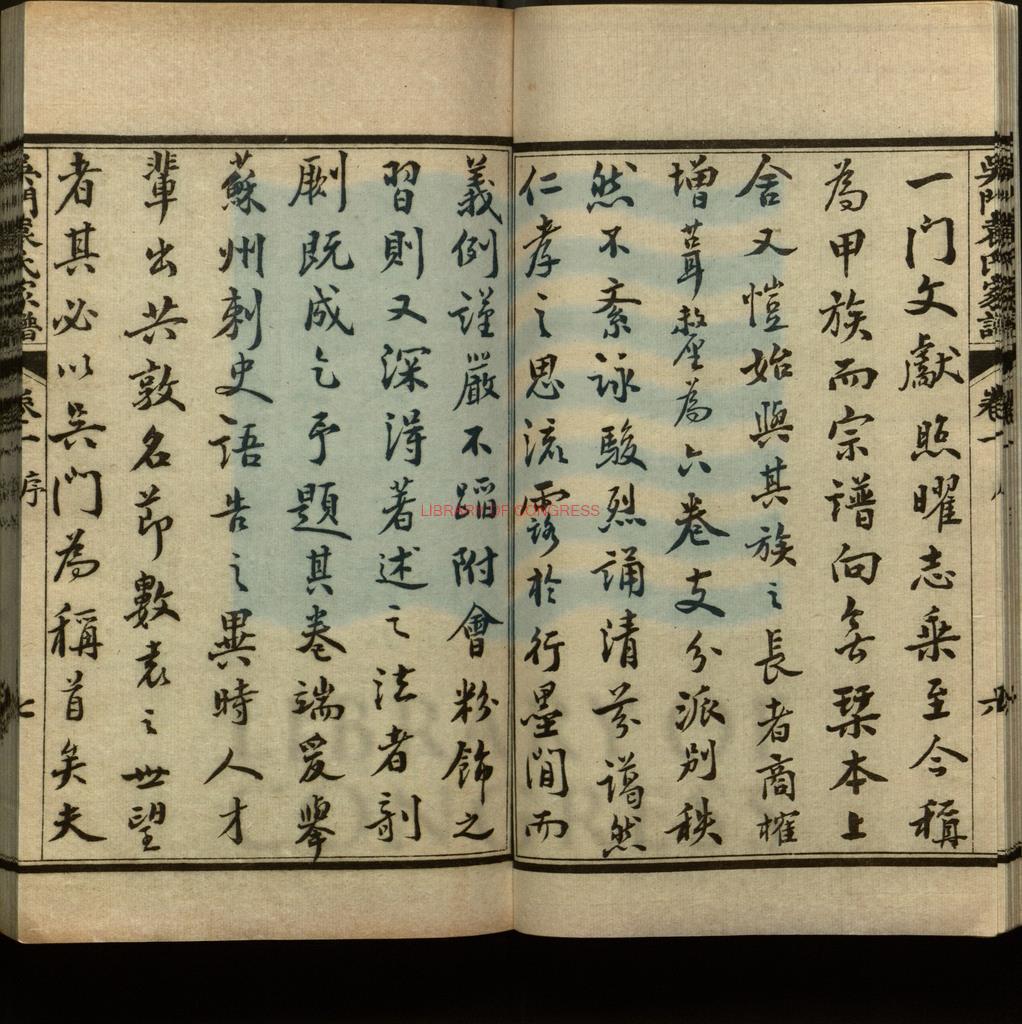 吳門袁氏家譜 卷一 六
一门文獻照曜志乘至今稱
為甲族而宗譜向無琹本上
舍又愷始與其族之長者商榷
增葺釐為六卷支分派別秩
然不紊詠駿烈誦清芬藹然
仁孝之思流露於行墨間而
義例謹嚴不蹈附會粉飾之
習則又深得著述之法者剞
劂既成乞予題其卷端爰舉
蘇州刺史語告之異時人才
輩出共敦名節數袁之世望
者其必以吳门為稱首矣夫
吳門袁氏家譜 卷一 序 七
LIBRARY OF CONGRESS